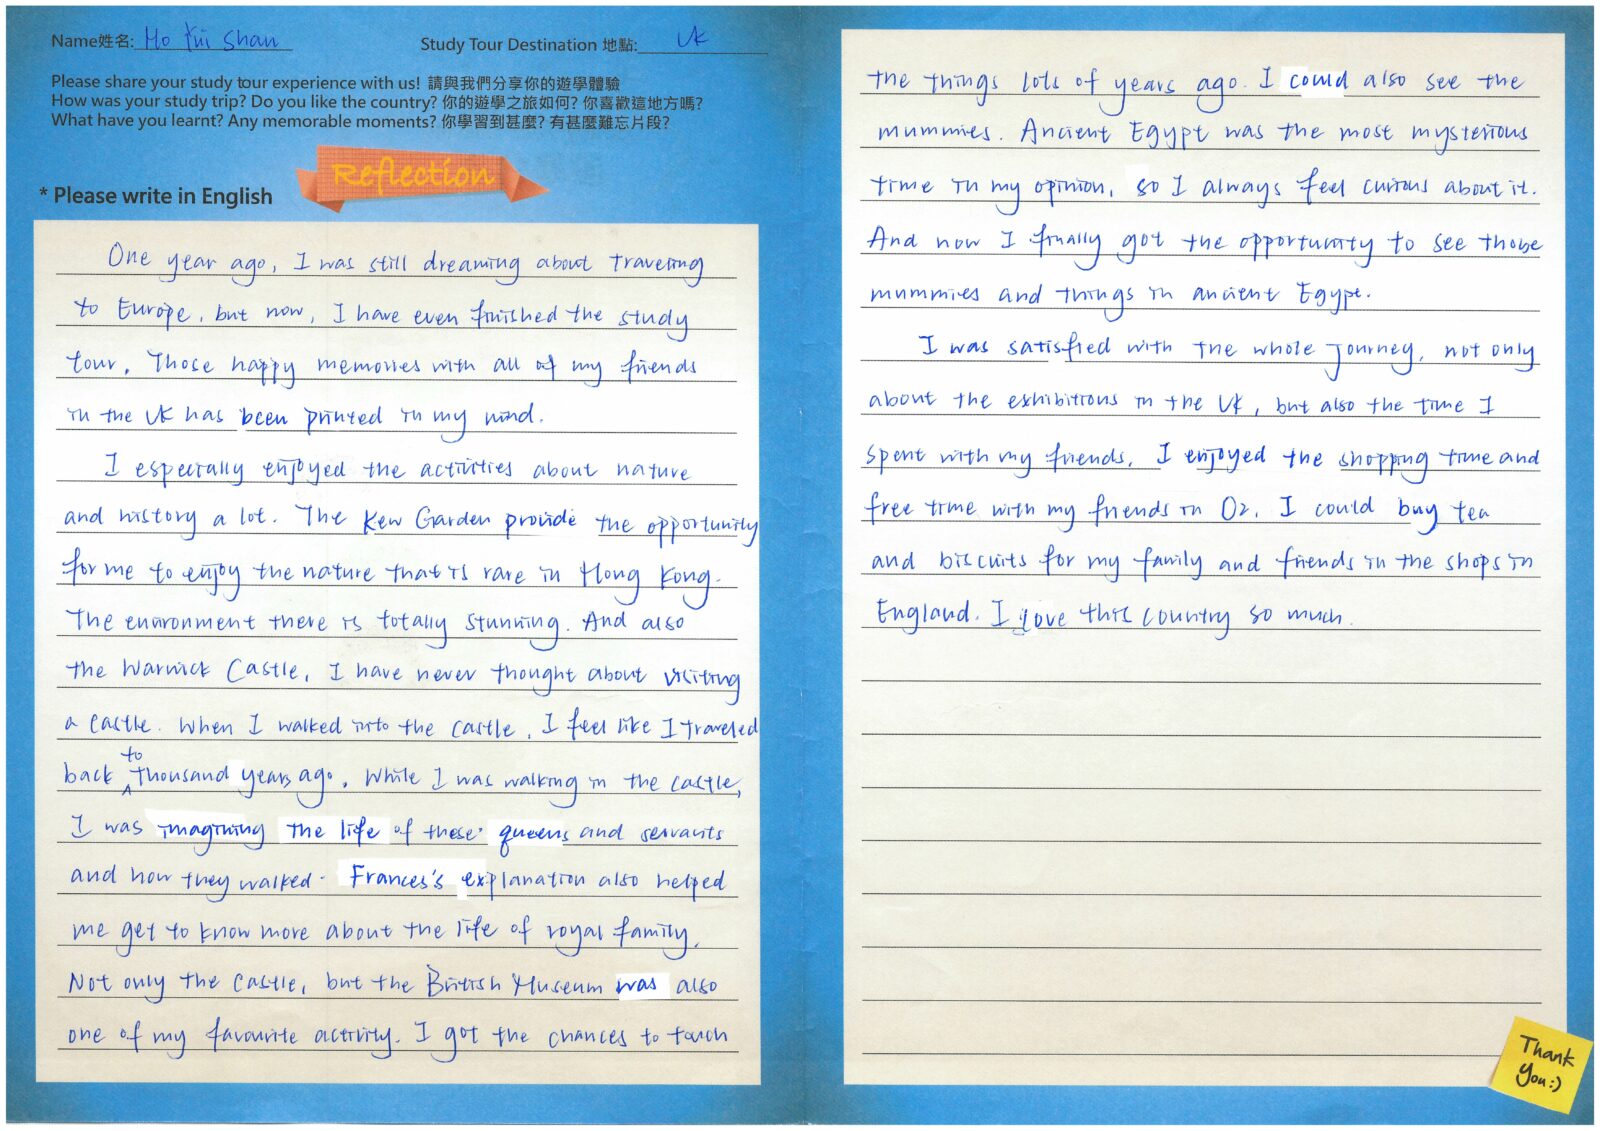 Name姓名: Ho Kui Shan
Study Tour Destination 地點: UK
Please share your study tour experience with us! 請與我們分享你的遊學體驗
How was your study trip? Do you like the country? 你的遊學之旅如何? 你喜歡這地方嗎?
What have you learnt? Any memorable moments? 你學習到甚麼? 有甚麼難忘片段?
Reflection
* Please write in English
One year ago, I was still dreaming about traveling
to Europe, but now, I have even finished the study
tour. Those happy memories with all of my friends
in the UK has been printed in my mind.
I especially enjoyed the activities about nature
and history a lot. The Kew Garden provide the opportunity
for me to enjoy the nature that is rare in Hong Kong.
The environment there is totally stunning. And also
the Warwick Castle, I have never thought about visiting
a castle. When I walked into the castle, I feel like I traveled
back to thousand years ago. While I was walking in the castle,
I was imagining the life of these queens and servants
and how they walked. Frances's explanation also helped
me get to know more about the life of royal family.
Not only the castle, but the British Museum was also
one of my favourite activity. I got the chances to touch
the things lots of years ago. I could also see the
mummies. Ancient Egypt was the most mysterious
time in my opinion, so I always feel curious about it.
And now I finally got the opportunity to see those
mummies and things in ancient Egypt.
I was satisfied with the whole journey, not only
about the exhibitions in the UK, but also the time I
spent with my friends. I enjoyed the shopping time and
free time with my friends in O2. I could buy tea
and biscuits for my family and friends in the shops in
England. I love this country so much.
Thank
You:)